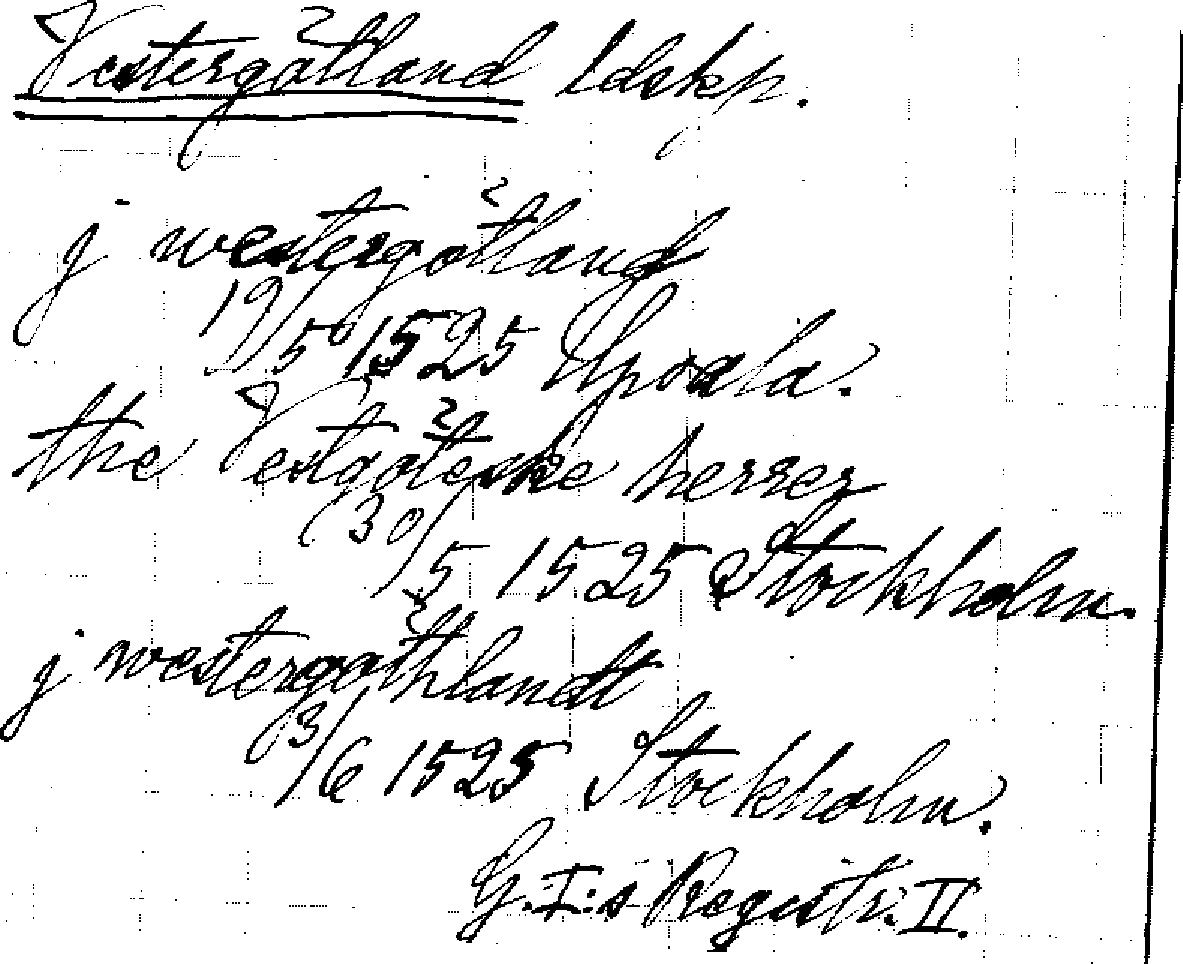 Vestergötland ldskp.
j westergötland
19/5 1525 Upsala.
the Vestgöteske herrer
30/5 1525 Stockholm.
j westergöthlandt
3/6 1525 Stockholm.
G. I:s Registr. II.